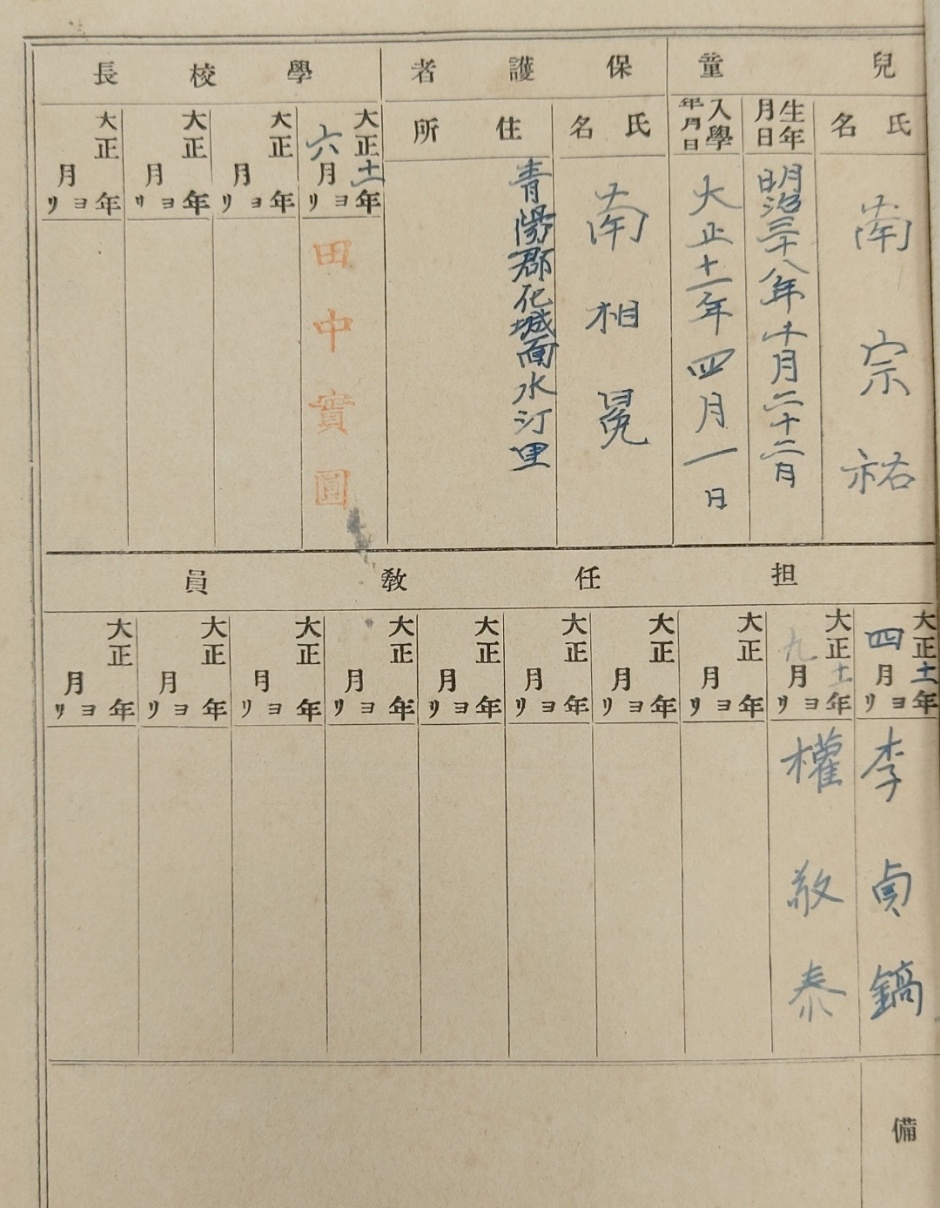 兒童
氏名
南宗祐
生年月日
明治三十八年十月二十二日
入學年月日
大正十一年四月一日
保護者
氏名
南相冕
住所
青陽郡化城面水汀里
學校長
大正十一年六月ヨリ
田中實圓
大正年月ヨリ
大正年月ヨリ
大正年月ヨリ
担任教員
大正十一年四月ヨリ
李貞鎬
大正十一年九月ヨリ
權敬泰
大正年月ヨリ
大正年月ヨリ
大正年月ヨリ
大正年月ヨリ
大正年月ヨリ
大正年月ヨリ
大正年月ヨリ
大正年月ヨリ
備